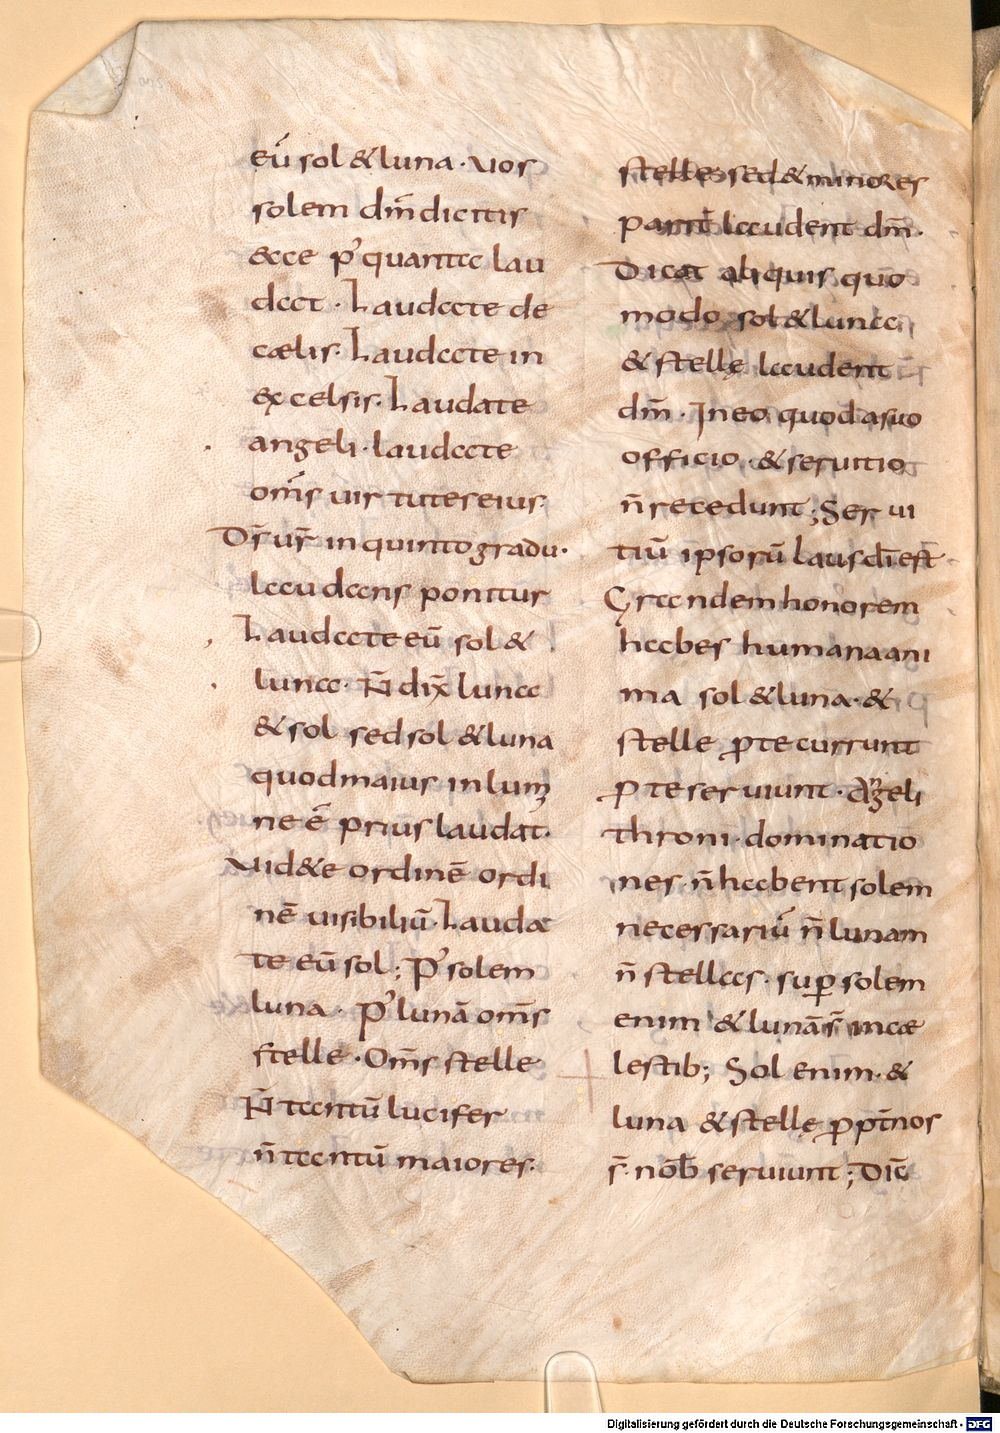 eū sol & luna · Vos
solem dm̄ dicitis
ecce p' quanta lau
dat · Laudate de
cælis · Laudate in
excelsis · Laudate
angeli · laudate
om̄s uirtutes eius ·
Dr̄ ur̄ in quinto gradu ·
laudans ponitur
Laudate eū sol &
luna · N̄ dix̄ luna
& sol sed sol & luna
quod maius in lumi
ne ē prius laudat ·
Vid&e ordinē ordi
nē uisibiliū · Lauda
te eū sol ; P' solem
luna · P' lunā om̄s
stelle · Om̄s stelle
N̄ tantū lucifer
n̄ tantū maiores ·
stelle sed & minores
parit̄ laudent dm̄ ·
Dicat aliquis quo
modo sol & luna
& stellę laudent
dm̄ · In eo quod a suo
officio · & seruitio
n̄ recedunt ; Serui
tiū ipsorū laus dī est
Grandem honorem
habes humana ani
ma sol & luna · &
stelle p̱ te currunt
p̱ te seruiunt · Angeli
throni · dominatio
nes · n̄ habent solem
necessariū n̄ lunam
n̄ stellas · sup̱ solem
enim & lunā s̄ in cæ
lestib; Sol enim · &
luna & stellę p̱pt̄ nos
s̄ · nob̄ seruiunt ; Dic̄
Digitalisierung gefördert durch die Deutsche Forschungsgemeinschaft - DFG